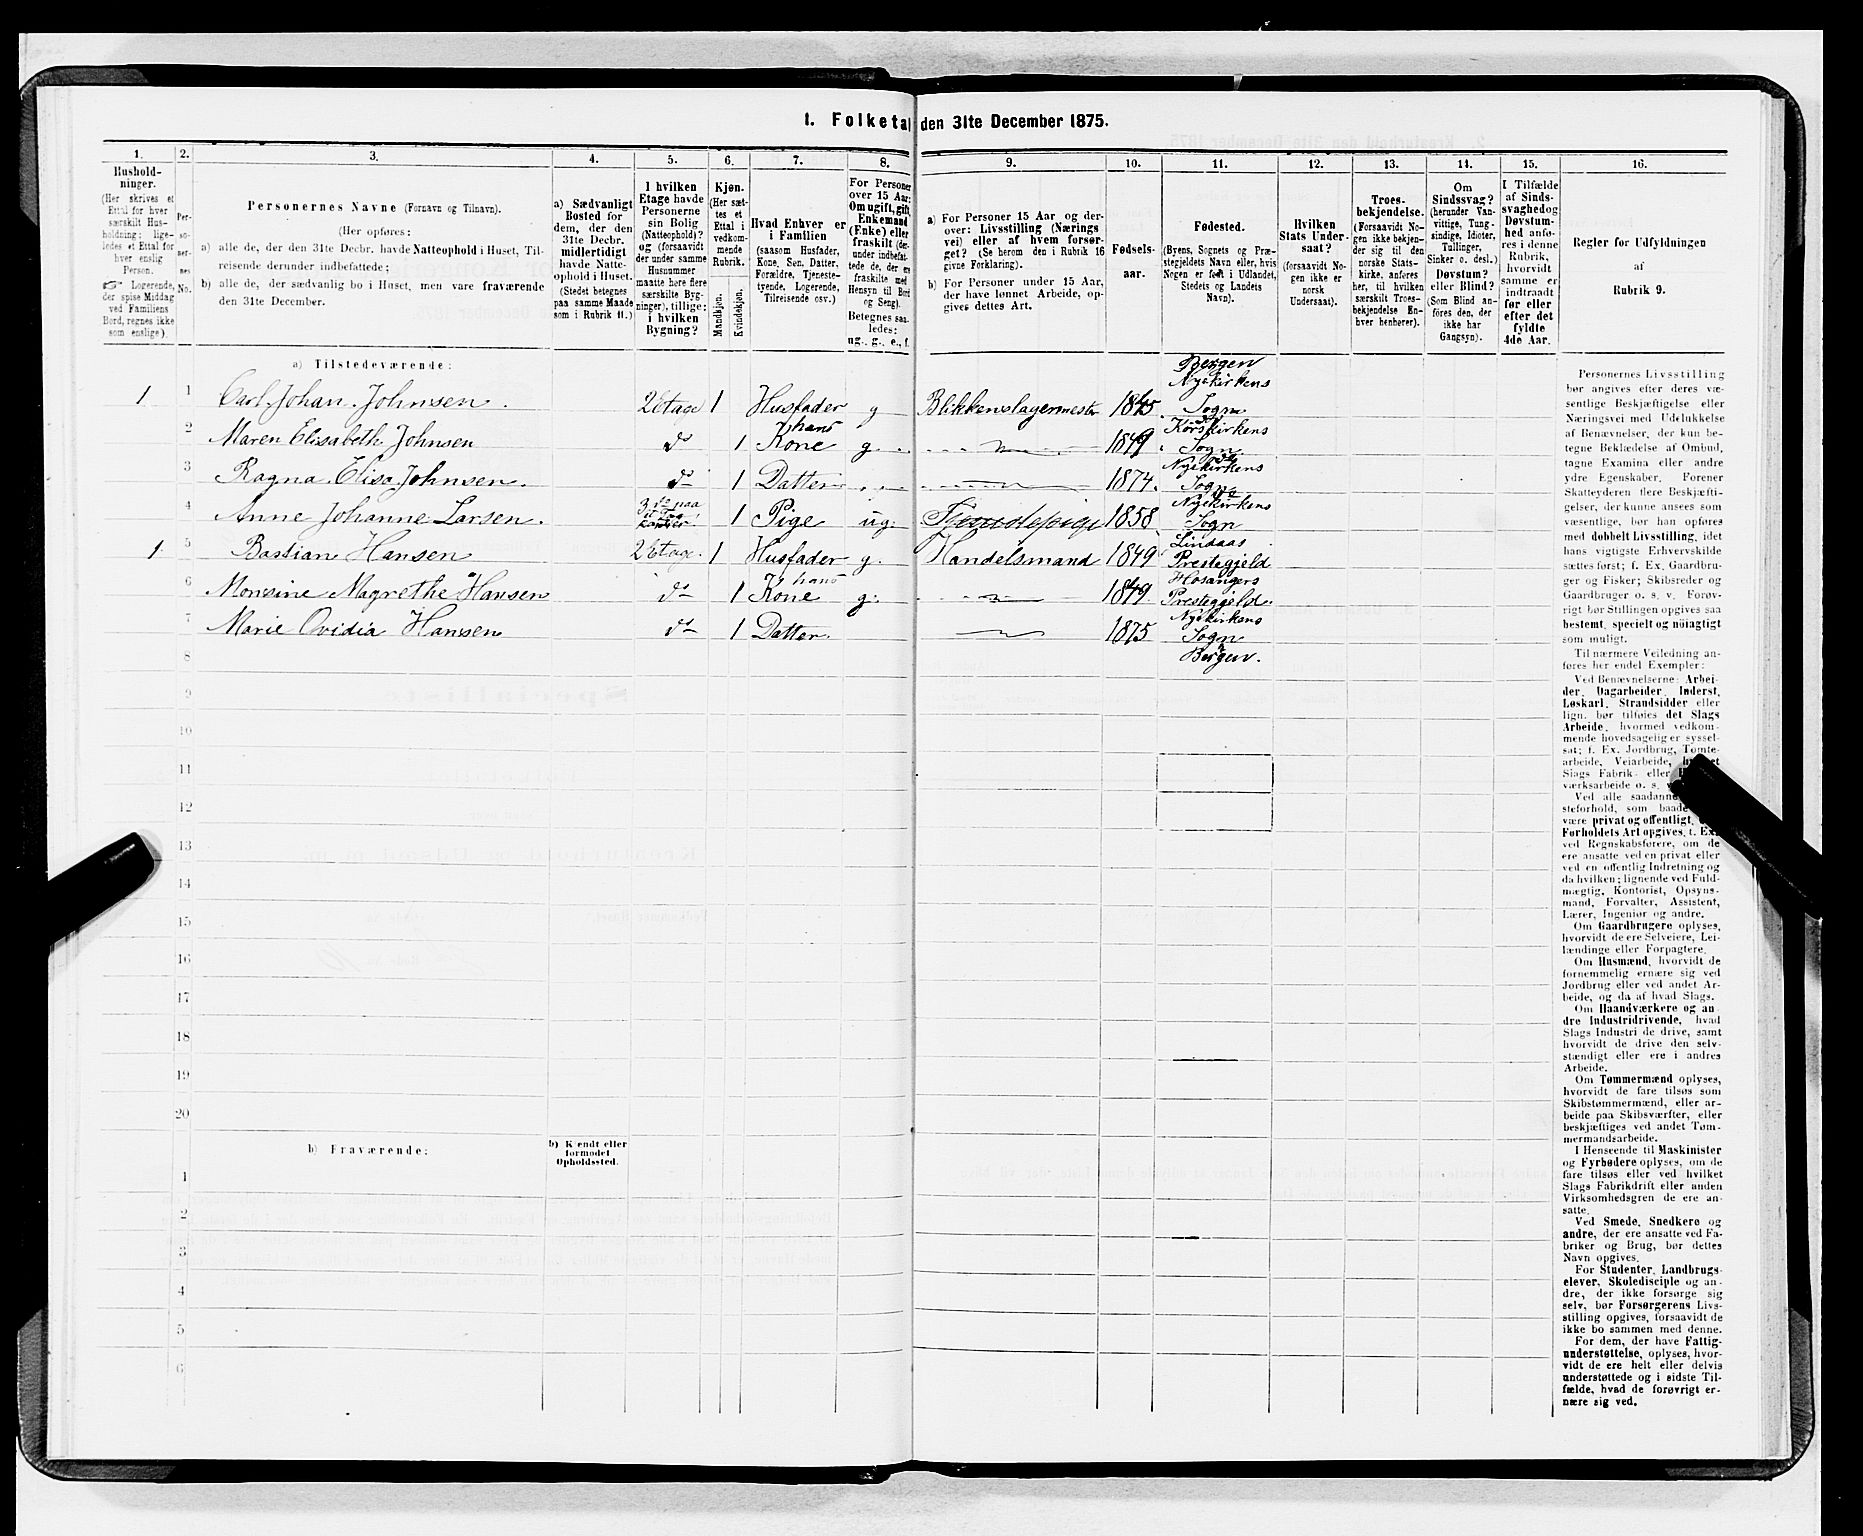 1. Folketal den 31te December 1875.
1.
2.
3.
4.
5.
6.
7.
8.
9.
10.
11.
12.
13.
14.
15.
16.
Hushold-
ninger.
(Her skrives et
Ettal for hver
særskilt Hus-
holdning; lige-
ledes et Ettal for
hver enslig
Person.
☞ Logerende,
der spise Middag
ved Familiens
Bord, regnes ikke
som enslige).
Per-
so-
ner-
nes
No.
Personernes Navne (Fornavn og Tilnavn).
(Her opføres:
a) alle de, der den 31te Decbr. havde Natteophold i Huset, Til-
reisende derunder indbefattede;
b) alle de, der sædvanlig bo i Huset, men vare fraværende
den 31te December.
a) Sædvanligt
Bosted for
dem, der den
31te Decbr.
midlertidigt
havde Natte-
ophold i Huset.
(Stedet betegnes
paa samme Maade
som i Rubrik 11.)
I hvilken
Etage havde
Personerne
sin Bolig
(Natteophold)?
og (forsaavidt
der under samme
Husnummer
maatte høre flere
særskilte Byg-
ninger), tillige:
i hvilken
Bygning?
Kjøn.
(Her sæt-
tes et
Ettal i
vedkom-
mende
Rubrik.
Mandkjøn.
Kvindekjøn.
Hvad Enhver er
i Familien
(saasom Husfader,
Kone, Søn, Datter,
Forældre, Tjeneste-
tyende, Logerende,
Tilreisende osv.)
For Personer
over 15 Aar:
Om ugift, gift,
Enkemand
(Enke) eller
fraskilt (der-
under indbefat-
tede de, der ere
fraskilte med
Hensyn til Bord
og Seng).
Betegnes saa-
ledes:
ug., g., e., f.
a) For Personer 15 Aar og der-
over: Livsstilling (Nærings
vei) eller af hvem forsør-
get? (Se herom den i Rubrik 16
givne Forklaring).
b) For Personer under 15 Aar,
der have lønnet Arbeide, op-
gives dettes Art.
Fødsels-
aar.
Fødested.
(Byens, Sognets og Præ-
stegjeldets Navn eller, hvis
Nogen er født i Udlandet,
Stedets og Landets
Navn).
Hvilken
Stats Under-
saat?
(forsaavidt No-
gen ikke er
norsk
Undersaat).
Troes-
bekjendelse.
(Forsaavidt No-
gen ikke bekjen-
der sig til den
norske Stats-
kirke, anføres
her, til hvilken
særskilt Troes-
bekjendelse En-
hver henhører).
Om
Sindssvag?
(herunder Van-
vittige, Tung-
sindige, Idioter,
Tullinger,
Sinker o. desl.)
Døvstum?
eller Blind?
(Som Blind an-
føres den, der
ikke har
Gangsyn).
I Tilfælde
af Sinds-
svaghed og
Døvstum-
hed anfø-
res i denne
Rubrik,
hvorvidt
samme er
indtraadt
før eller
efter det
fyldte
4de Aar.
Regler for Udfyldningen
af
Rubrik 9.
a) Tilstedeværende:
1 1 Carl Johan Johnsen. 2 Etage 1 Husfader g Blikkenslagermester 1845 Bergen Nyekirkens Sogn
2 Maren Elisabeth Johnsen do 1 hans Kone g. 1849 Korskirkens Sogn
3 Ragna Elisa Johnsen. do 1 Datter 1874. Nyekirkens Sogn
4 Anne Johanne Larsen. 1 Pige ug. Tjenestepige 1858 Nyekirkens Sogn
1 5 Bastian Hansen 2 Etage. 1 Husfader g. Handelsmand 1849 Lindaas Prestegjeld
6 Monsine Magrethe Hansen do 1 hans Kone g. 1849. Hosangers Prestegjeld.
7 Marie Ovidia Hansen do 1 Datter. 1875 Nyekirkens Sogn Bergen.
8
9
10
11
12
13
14
15
16
17
18
19
20
b) Fraværende:
b) Kjendt eller
formodet
Opholdssted.
1
2
3
4
5
6
Personernes Livsstilling
bør angives efter deres væ-
sentlige Beskjæftigelse eller
Næringsvei med Udelukkelse
af Benævnelser, der kun be-
tegne Beklædelse af Ombud,
tagne Examina eller andre
ydre Egenskaber. Forener
Skatteyderen flere Beskjæfti-
gelser, der kunne ansees som
væsentlige, bør han opføres
med dobbelt Livsstilling, idet
hans vigtigste Erhvervskilde
sættes først; f. Ex. Gaardbru-
ger og Fisker; Skibsreder og
Gaardbruger o. s. v. Forøv-
rigt bør Stillingen opgives saa
bestemt, specielt og nöiagtigt
som muligt.
Til nærmere Veiledning an-
føres her endel Exempler:
Ved Benævnelserne: Arbei-
der, Dagarbeider, Inderst,
Løskarl, Strandsidder eller
lign. bør tilføies det Slags
Arbeide, hvormed vedkom-
mende hovedsagelig er syssel-
sat; f. Ex. Jordbrug, Tomte-
arbeide, Veiarbeide,
Slags Fabrik- eller
værksarbeide o. s. v.
Ved alle saadanne
steforhold, som baade
være privat og offentligt,
Forholdets Art opgives, f. Ex.
ved Regnskabsførere, om de
ere ansatte ved en privat eller
ved en offentlig Indretning og
da hvilken; lignende ved Fuld-
mægtig, Kontorist, Opsyns-
mand, Forvalter, Assistent,
Lærer, Ingeniør og andre.
Om Gaardbrugere oplyses,
hvorvidt de ere Selveiere, Lei-
lændinge eller Forpagtere.
Om Husmænd, hvorvidt de
fornemmelig ernære sig ved
Jordbrug eller ved andet Ar-
beide, og da af hvad Slags.
Om Haandværkere og an-
dre Industridrivende, hvad
Slags Industri de drive, samt
hvorvidt de drive den selv-
stændigt eller ere i andres
Arbeide.
Om Tømmermænd oplyses,
hvorvidt de fare tilsøs som
Skibstømmermænd, eller ar-
beide paa Skibsværfter, eller
beskjæftiges ved andet Tøm-
mermandsarbeide.
I Henseende til Maskinister
og Fyrbødere oplyses, om de
fare tilsøs eller ved hvilket
Slags Fabrikdrift eller anden
Virksomhedsgren de ere an-
satte.
Ved Smede, Snedkere og
andre, der ere ansatte ved Fa-
briker og Brug, bør dettes
Navn opgives.
For Studenter, Landbrugs-
elever, Skoledisciple og an-
dre, der ikke forsørge sig
selv, bør Forsørgerens Livs-
stilling opgives, forsaavidt de
ikke bo sammen med denne.
For dem, der have Fattig-
understøttelse, oplyses, hvor-
vidt de ere helt eller delvis
understøttede og i sidste Til-
fælde, hvad de forøvrigt er-
nære sig ved.